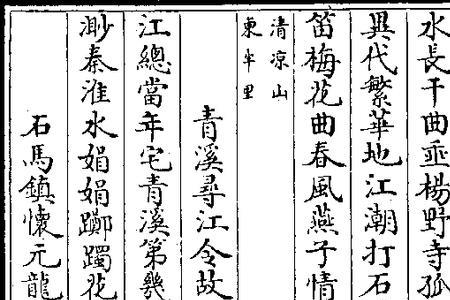 水長干曲亜楊野寺孤
異代繁華地江潮打石
笛梅花曲春風燕子情
清凉山
東半里
青溪尋江令故
江總當年宅青溪第幾
渺秦淮水娟娟躑躅花
石馬鎮懷元龍